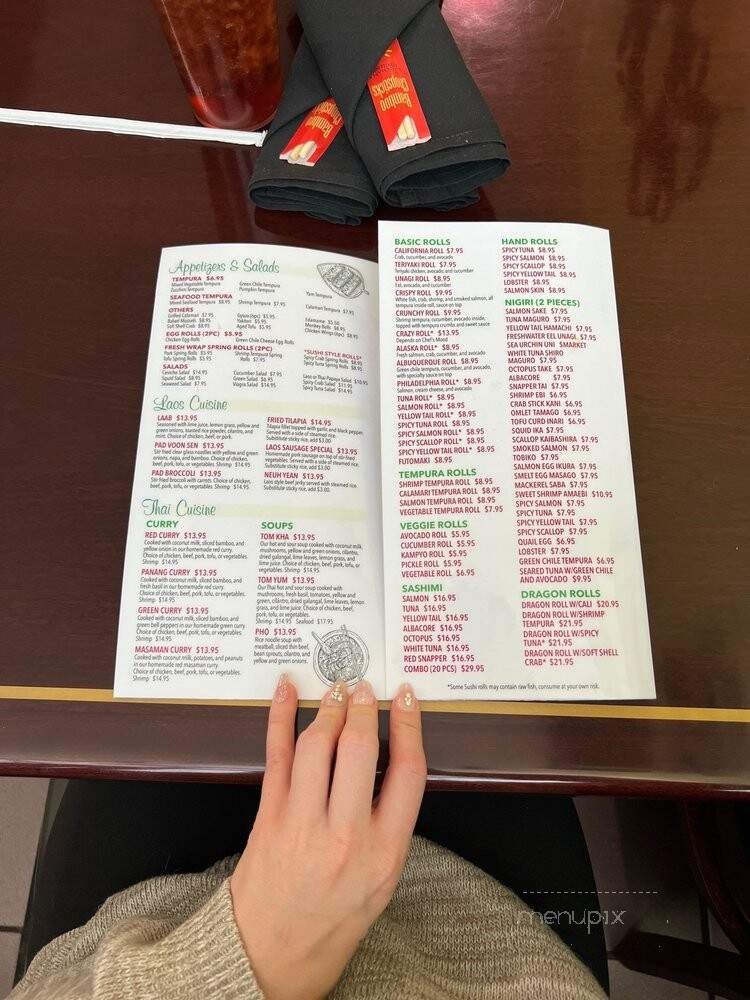 Bamboo
Chopsticks
Bamboo
Chopsticks
Appetizers & Salads
TEMPURA $6.95
Mixed Vegetable Tempura
Green Chile Tempura
Yam Tempura
Zucchini Tempura
Pumpkin Tempura
SEAFOOD TEMPURA
Mixed Seafood Tempura $8.95
Shrimp Tempura $7.95
Calamari Tempura $7.95
OTHERS
Grilled Calamari $7.95
Gyoza (5pc) $5.95
Edamame $5.50
Baked Mussels $8.95
Yakitori $5.95
Monkey Balls $8.95
Soft Shell Crab $8.95
Aged Tofu $5.95
Chicken Wings (6pc) $8.95
EGG ROLLS (2PC) $5.95
Chicken Egg Rolls
Green Chile Cheese Egg Rolls
FRESH WRAP SPRING ROLLS (2PC)
*SUSHI STYLE ROLLS*
Pork Spring Rolls $5.95
Shrimp Tempura Spring
Rolls $7.95
Spicy Crab Spring Rolls $8.95
Tofu Spring Rolls $5.95
Spicy Tuna Spring Rolls $8.95
SALADS
Ceviche Salad $14.95
Cucumber Salad $7.95
Laos or Thai Papaya Salad $10.95
Squid Salad $8.95
Green Salad $6.95
Spicy Crab Salad $11.95
Seaweed Salad $7.95
Viagra Salad $14.95
Spicy Tuna Salad $14.95
Laos Cuisine
LAAB $13.95
Seasoned with lime juice, lemon grass, yellow and
green onions, roasted rice powder, cilantro, and
mint. Choice of chicken, beef, or pork.
PAD VOON SEN $13.95
Stir fried clear glass noodles with yellow and green
onions, napa, and bamboo. Choice of chicken,
beef, pork, tofu, or vegetables. Shrimp $14.95
PAD BROCCOLI $13.95
Stir fried broccoli with carrots. Choice of chicken,
beef, pork, tofu, or vegetables. Shrimp $14.95
FRIED TILAPIA $14.95
Tilapia fillet topped with garlic and black pepper.
Served with a side of steamed rice.
Substitute sticky rice, add $3.00.
LAOS SAUSAGE SPECIAL $13.95
Homemade pork sausage on top of stir fried
vegetables. Served with a side of steamed rice.
Substitute sticky rice, add $3.00.
NEUH YEAN $13.95
Laos style beef jerky served with steamed rice.
Substitute sticky rice, add $3.00.
Thai Cuisine
CURRY
RED CURRY $13.95
Cooked with coconut milk, sliced bamboo, and
yellow onion in our homemade red curry.
Choice of chicken, beef, pork, tofu, or vegetables.
Shrimp $14.95
PANANG CURRY $13.95
Cooked with coconut milk, sliced bamboo, and
fresh basil in our homemade red curry.
Choice of chicken, beef, pork, tofu, or vegetables.
Shrimp $14.95
GREEN CURRY $13.95
Cooked with coconut milk, sliced bamboo, and
green bell peppers in our homemade green curry.
Choice of chicken, beef, pork, tofu, or vegetables.
Shrimp $14.95
MASAMAN CURRY $13.95
Cooked with coconut milk, potatoes, and peanuts
in our homemade red masaman curry.
Choice of chicken, beef, pork, tofu, or vegetables.
Shrimp $14.95
SOUPS
TOM KHA $13.95
Our hot and sour soup cooked with coconut milk,
mushrooms, yellow and green onions, cilantro,
dried galangal, lime leaves, lemon grass, and
lime juice. Choice of chicken, beef, pork, tofu, or
vegetables. Shrimp $14.95
TOM YUM $13.95
Our Thai hot and sour soup cooked with
mushrooms, fresh basil, tomatoes, yellow and
green, cilantro, dried galangal, lime leaves, lemon
grass, and lime juice. Choice of chicken, beef,
pork, tofu, or vegetables.
Shrimp $14.95 Seafood $17.95
PHO $13.95
Rice noodle soup with
meatball, sliced thin beef,
bean sprouts, cilantro, and
yellow and green onions.
BASIC ROLLS
CALIFORNIA ROLL $7.95
Crab, cucumber, and avocado
TERIYAKI ROLL $7.95
Teriyaki chicken, avocado, and cucumber
UNAGI ROLL $8.95
Eel, avocado, and cucumber
CRISPY ROLL $9.95
White fish, crab, shrimp, and smoked salmon, all
tempura inside roll, sauce on top
CRUNCHY ROLL $9.95
Shrimp tempura, cucumber, avocado inside,
topped with tempura crumbs and sweet sauce
CRAZY ROLL* $13.95
Depends on Chef's Mood
ALASKA ROLL* $8.95
Fresh salmon, crab, cucumber, and avocado
ALBUQUERQUE ROLL $8.95
Green chile tempura, cucumber, and avocado,
with specialty sauce on top
PHILADELPHIA ROLL* $8.95
Salmon, cream cheese, and avocado
TUNA ROLL* $8.95
SALMON ROLL* $8.95
YELLOW TAIL ROLL* $8.95
SPICY TUNA ROLL $8.95
SPICY SALMON ROLL* $8.95
SPICY SCALLOP ROLL* $8.95
SPICY YELLOW TAIL ROLL* $8.95
FUTOMAKI $8.95
TEMPURA ROLLS
SHRIMP TEMPURA ROLL $8.95
CALAMARI TEMPURA ROLL $8.95
SALMON TEMPURA ROLL $8.95
VEGETABLE TEMPURA ROLL $7.95
VEGGIE ROLLS
AVOCADO ROLL $5.95
CUCUMBER ROLL $5.95
KAMPYO ROLL $5.95
PICKLE ROLL $5.95
VEGETABLE ROLL $6.95
SASHIMI
SALMON $16.95
TUNA $16.95
YELLOW TAIL $16.95
ALBACORE $16.95
OCTOPUS $16.95
WHITE TUNA $16.95
RED SNAPPER $16.95
COMBO (20 PCS) $29.95
HAND ROLLS
SPICY TUNA $8.95
SPICY SALMON $8.95
SPICY SCALLOP $8.95
SPICY YELLOW TAIL $8.95
LOBSTER $8.95
SALMON SKIN $8.95
NIGIRI (2 PIECES)
SALMON SAKE $7.95
TUNA MAGURO $7.95
YELLOW TAIL HAMACHI $7.95
FRESHWATER EEL UNAGI $7.95
SEA URCHIN UNI $MARKET
WHITE TUNA SHIRO
MAGURO $7.95
OCTOPUS TAKE $7.95
ALBACORE $7.95
SNAPPER TAI $7.95
SHRIMP EBI $6.95
CRAB STICK KANI $6.95
OMLET TAMAGO $6.95
TOFU CURD INARI $6.95
SQUID IKA $7.95
SCALLOP KAIBASHIRA $7.95
SMOKED SALMON $7.95
TOBIKO $7.95
SALMON EGG IKURA $7.95
SMELT EGG MASAGO $7.95
MACKEREL SABA $7.95
SWEET SHRIMP AMAEBI $10.95
SPICY SALMON $7.95
SPICY TUNA $7.95
SPICY YELLOW TAIL $7.95
SPICY SCALLOP $7.95
QUAIL EGG $6.95
LOBSTER $7.95
GREEN CHILE TEMPURA $6.95
SEARED TUNA W/GREEN CHILE
AND AVOCADO $9.95
DRAGON ROLLS
DRAGON ROLL W/CALI $20.95
DRAGON ROLL W/SHRIMP
TEMPURA $21.95
DRAGON ROLL W/SPICY
TUNA* $21.95
DRAGON ROLL W/SOFT SHELL
CRAB* $21.95
*Some Sushi rolls may contain raw fish, consume at your own risk.
menupix